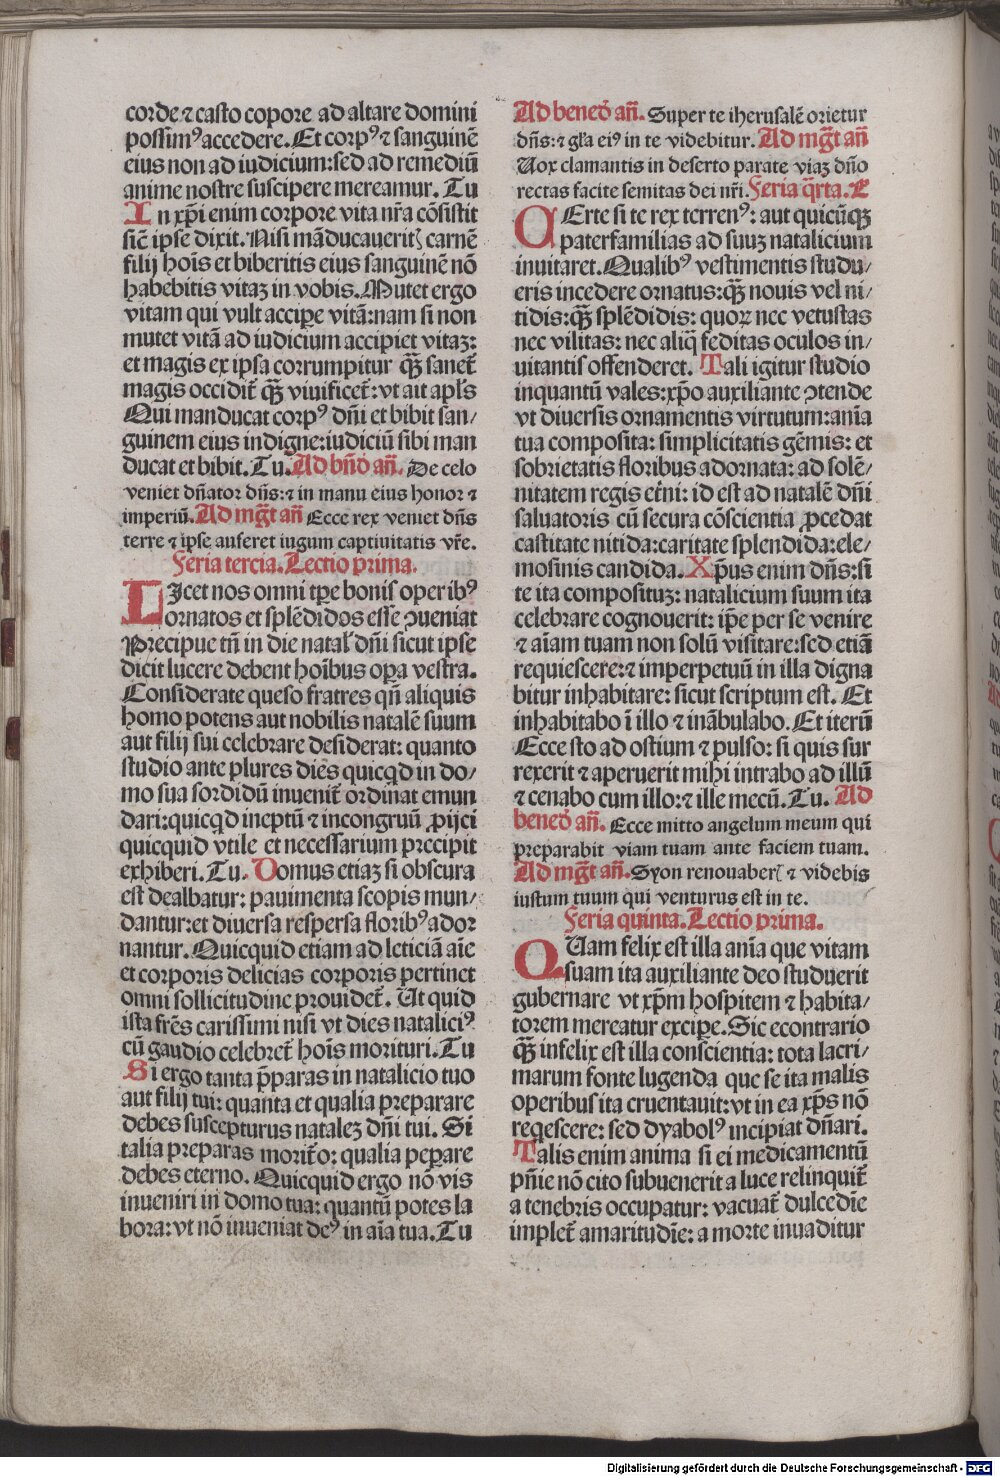 corde ⁊ casto copore ad altare domini
possimꝰ accedere. Et corpꝰ ⁊ sanguinē
eius non ad iudicium: sed ad remediū
anime nostre suscipere mereamur. Tu
In xp̄i enim corpore vita nr̄a cōsistit
sic̄ ipse dixit. Nisi māducaueritꝭ carnē
filij hoīs et biberitis eius sanguinē nō
habebitis vitaꝫ in vobis. Mutet ergo
vitam qui vult accipe vitā: nam si non
mutet vitā ad iudicium accipiet vitaꝫ:
et magis ex ipsa corrumpitur q̄ꝫ sanet᷑
magis occidit᷑ q̄ꝫ viuificet᷑: vt ait apl̄s
Qui manducat corpꝰ dn̄i et bibit san/
guinem eius indigne: iudiciū sibi man
ducat et bibit. Tu. Ad bn̄d an̄. De celo
veniet dn̄ator dn̄s: ⁊ in manu eius honor ⁊
imperiū. Ad mgt̄ an̄ Ecce rex veniet dn̄s
terre ⁊ ipse auferet iugum captiuitatis vr̄e.
Feria tercia. Lectio prima.
LIcet nos omni tp̄e bonis operibꝰ
ornatos et splēdidos esse ꝯueniat
Precipue tn̄ in die natal' dn̄i sicut ipse
dicit lucere debent hoībus oꝑa vestra.
Considerate queso fratres qn̄ aliquis
homo potens aut nobilis natalē suum
aut filij sui celebrare desiderat: quanto
studio ante plures dies quicqd in do/
mo sua sordidū inuenit᷑ ordinat emun
dari: quicqd ineptū ⁊ incongruū ꝓijci
quicquid vtile et necessarium precipit
exhiberi. Tu. Domus etiaꝫ si obscura
est dealbatur: pauimenta scopis mun/
dantur: et diuersa respersa floribꝰ ador
nantur. Quicquid etiam ad leticiā aīe
et corporis delicias corporis pertinet
omni sollicitudine prouidet᷑. Ut quid
ista fr̄es carissimi nisi vt dies nataliciꝰ
cū gaudio celebret᷑ hoīs morituri. Tu
Si ergo tanta p̄paras in natalicio tuo
aut filij tui: quanta et qualia preparare
debes suscepturus nataleꝫ dn̄i tui. Si
talia preparas morit᷑o: qualia peꝑare
debes eterno. Quicquid ergo nō vis
inueniri in domo tua: quantū potes la
bora: vt nō inueniat deꝰ in aīa tua. Tu
Ad bened' an̄. Super te iherusalē orietur
dn̄s: ⁊ gl'a eiꝰ in te videbitur. Ad mgt̄ an̄
Uox clamantis in deserto parate viaꝫ dn̄o
rectas facite semitas dei nr̄i. Feria q̄rta. E
CErte si te rex terrenꝰ: aut quicūqꝫ
paterfamilias ad suuꝫ natalicium
inuitaret. Qualibꝰ vestimentis studu/
eris incedere ornatus: q̄ꝫ nouis vel ni/
tidis: q̄ꝫ splēdidis: quoꝝ nec vetustas
nec vilitas: nec aliq̄ feditas oculos in/
uitantis offenderet. Tali igitur studio
inquantū vales: xp̄o auxiliante ꝯtende
vt diuersis ornamentis virtutum: anīa
tua composita: simplicitatis gēmis: et
sobrietatis floribus adornata: ad solē/
nitatem regis et᷑ni: id est ad natalē dn̄i
saluatoris cū secura cōscientia ꝓcedat
castitate nitida: caritate splendida: ele/
mosinis candida. Xp̄us enim dn̄s: si
te ita composituꝫ: natalicium suum ita
celebrare cognouerit: ip̄e per se venire
⁊ aīam tuam non solū visitare: sed etiā
requiescere: ⁊ imperpetuū in illa digna
bitur inhabitare: sicut scriptum est. Et
inhabitabo ī illo ⁊ ināmbulabo. Et iterū
Ecce sto ad ostium ⁊ pulso: si quis sur
rexerit ⁊ aperuerit mihi intrabo ad illū
⁊ cenabo cum illo: ⁊ ille mecū. Tu. Ad
bened' an̄. Ecce mitto angelum meum qui
preparabit viam tuam ante faciem tuam.
Ad mgt̄ an̄. Syon renouaberꝭ ⁊ videbis
iustum tuum qui venturus est in te.
Feria quinta. Lectio prima.
QUam felix est illa anīa que vitam
suam ita auxiliante deo studuerit
gubernare vt xp̄m hospitem ⁊ habita/
torem mereatur excipe. Sic econtrario
q̄ꝫ infelix est illa conscientia: tota lacri/
marum fonte lugenda que se ita malis
operibus ita cruentauit: vt in ea xp̄s nō
reqescere: sed dyabolꝰ incipiat dn̄ari.
Talis enim anima si ei medicamentū
pn̄ie nō cito subuenerit a luce relinquit᷑
a tenebris occupatur: vacuat᷑ dulcedīe
implet᷑ amaritudīe: a morte inuaditur
Digitalisierung gefördert durch die Deutsche Forschungsgemeinschaft - DFG